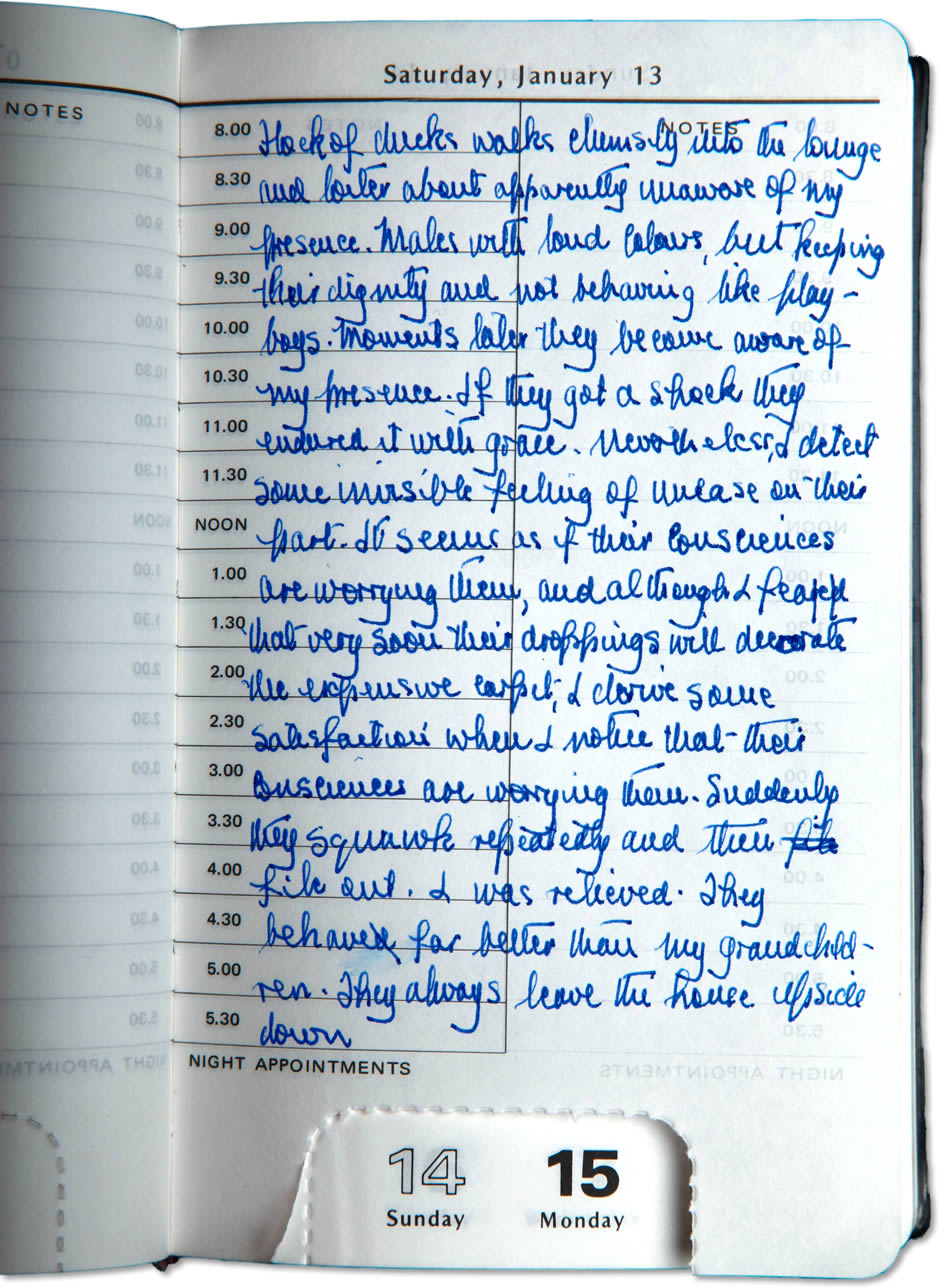 Saturday, January 13
NOTES
NOTES
8.00 Flock of ducks walks clumsily into the lounge
8.30 and loiter about apparently unaware of my
9.00 presence. Males with loud colours, but keeping
9.30 their dignity and not behaving like play-
10.00 boys. Moments later they become aware of
10.30 my presence. If they got a shock they
11.00 endured it with grace. Nevertheless, I detect
11.30 some invisible feeling of unease on their
NOON part. It seems as if their consciences
1.00 are worrying them, and although I
1.30 that very soon their droppings will decorate
2.00 the expensive carpet, I derive some
2.30 satisfaction when I notice that their
3.00 consciences are worrying them. Suddenly
3.30 they squawk repeatedly and then
4.00 file out. I was relieved. They
4.30 behaved far better than my grandchild-
5.00 ren. They always leave the house upside
5.30 down
NIGHT APPOINTMENTS
14 15
Sunday Monday